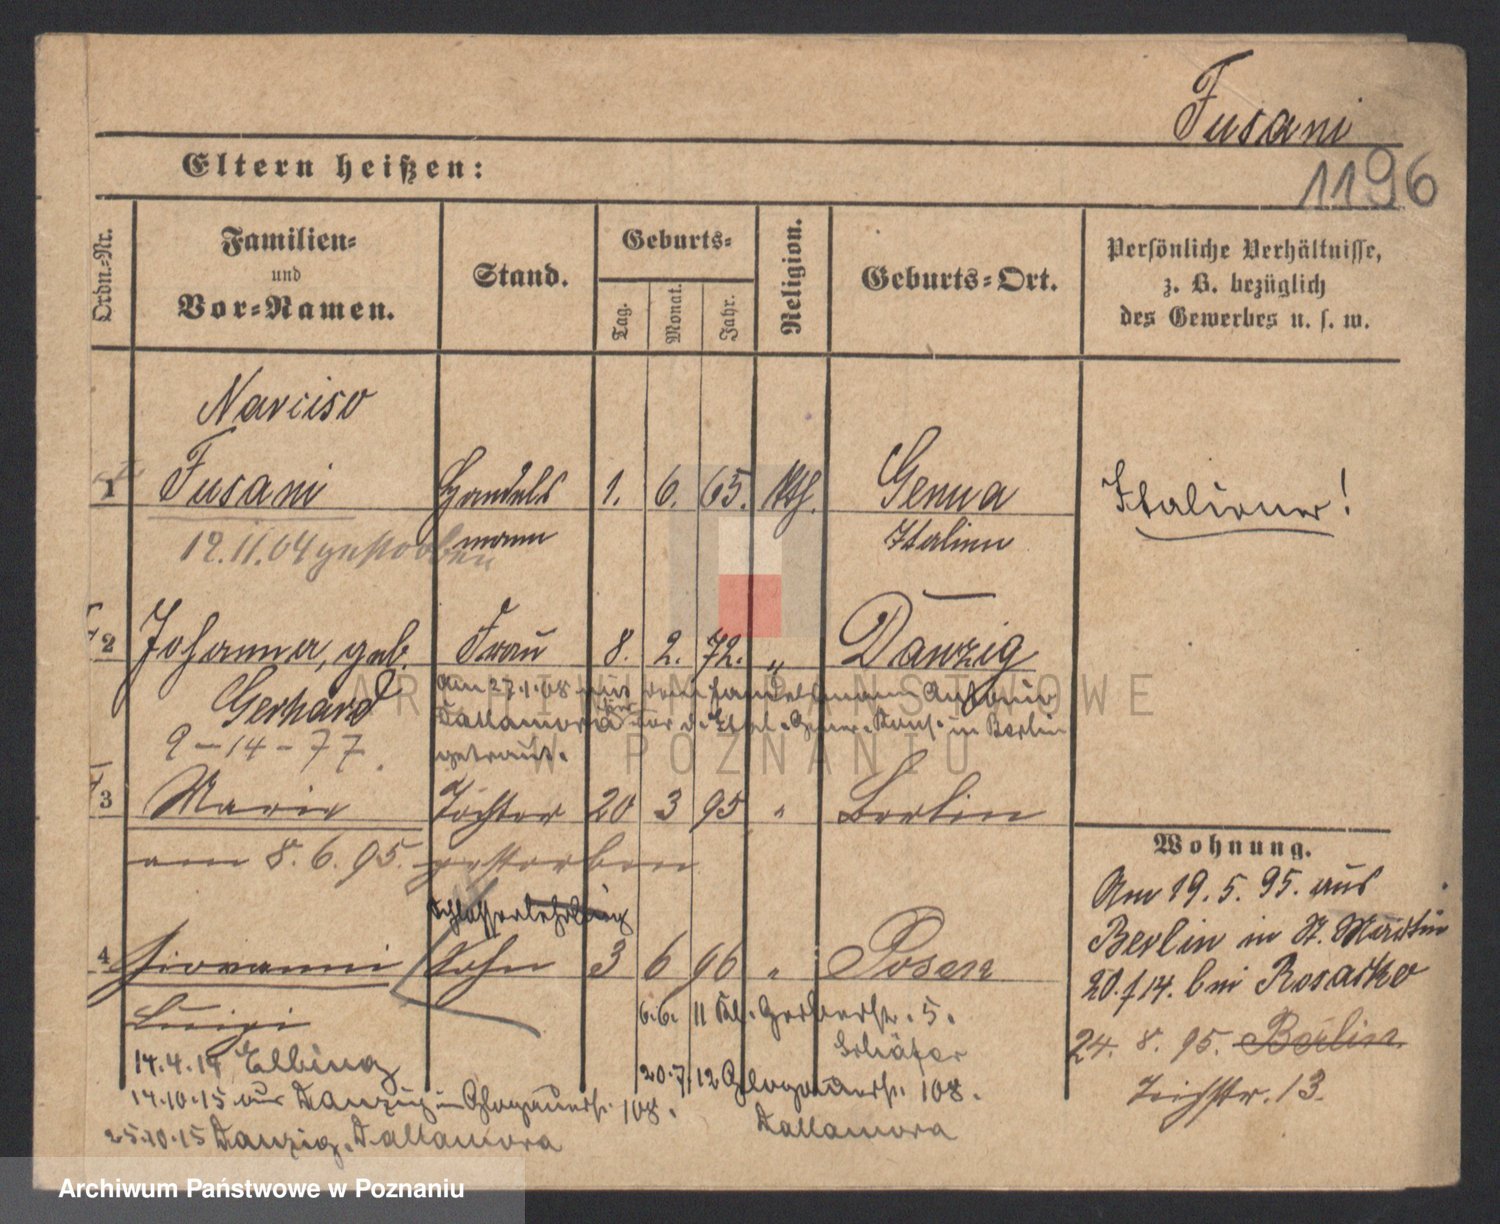 Fusani
1196
Eltern heißen:
Ordn.-Nr.
Familien-
und
Vor-Namen.
Stand.
Geburts-
Tag.
Monat.
Jahr.
Religion.
Geburts-Ort.
Persönliche Verhältnisse,
z. B. bezüglich
des Gewerbes u. s. w.
Narciso
1 Fusani Handels 1. 6. 65. Kth. Genua Italiener!
mann Italien
12.11.04 gestorben
2 Johanna, geb. Frau 8. 2. 72. " Danzig
Gerhard
am 27.1.08 mit dem Handelsmann Antonio
Dallamora vor d. Ital. Gener. Kons. in Berlin
getraut.
9-14-77.
3 Marie Tochter 20 3 95 " Berlin
am 8.6.95. gestorben
Schlosserlehrling
4 Giovanni Sohn 3 6 96 " Posen
Luigi
6.6. 11 Gerberstr. 5.
Schäfer
20.7.12 Glogauerstr. 108.
Dallamora
14.4.14 Elbing
14.10.15 aus Danzig Glogauerstr. 108.
25.10.15 Danzig. Dallamora
Wohnung.
Am 19.5.95. aus
Berlin in St. Martin
20./14. bei Rosatko
24. 8. 95. Berlin
Teichstr. 13.
ARCHIWUM PAŃSTWOWE
W POZNANIU
Archiwum Państwowe w Poznaniu